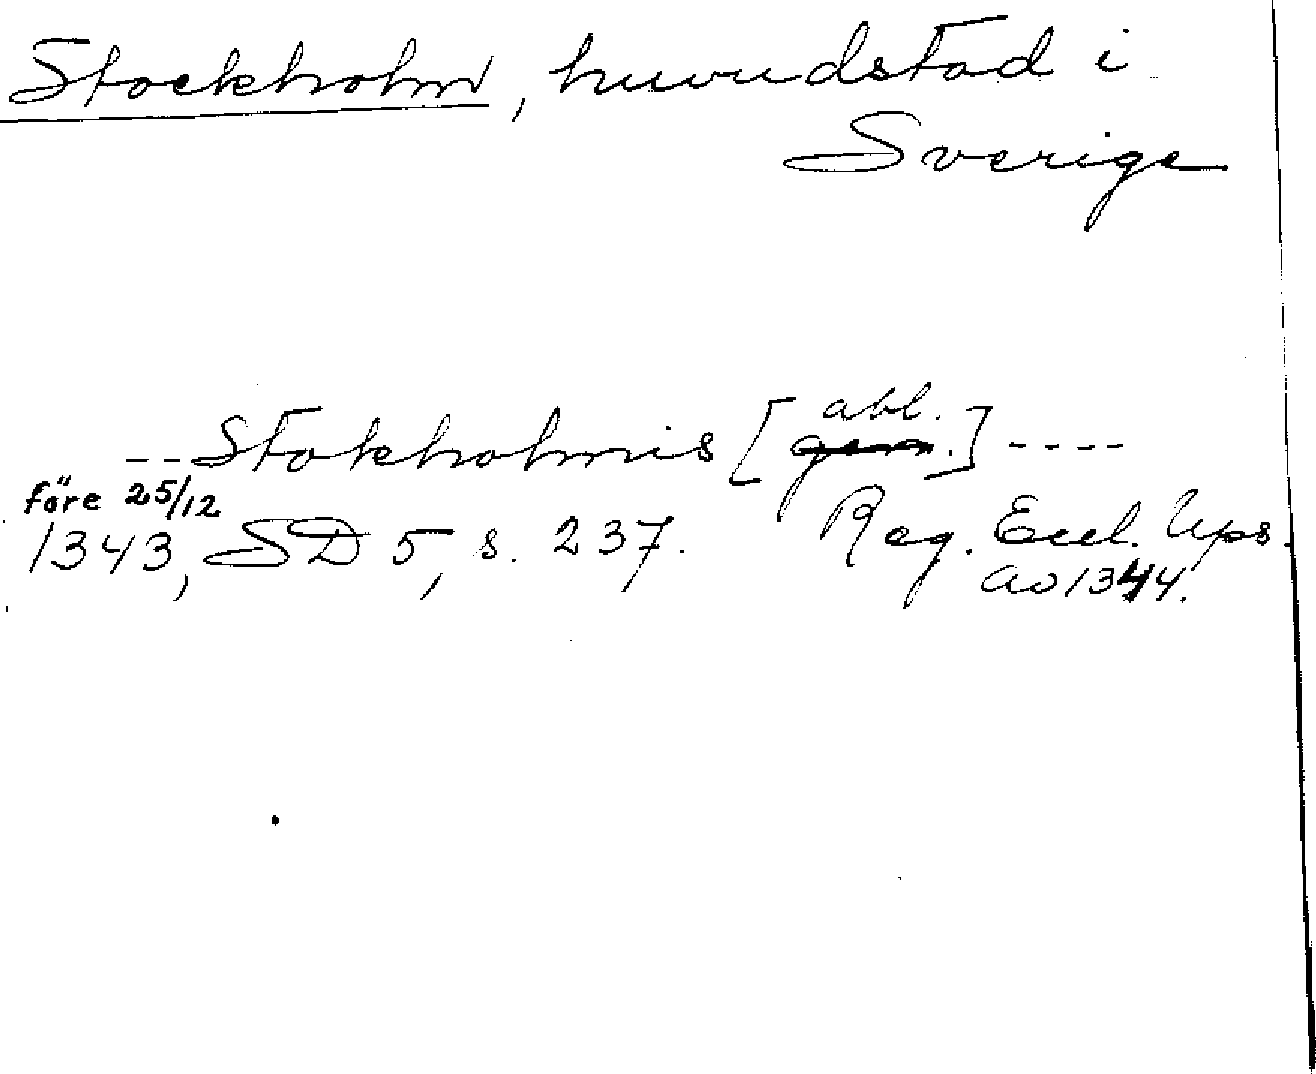 Stockholm, huvudstad i
Sverige
--Stokholmis [abl.] ----
före 25/12
1343, SD 5, s. 237. Reg. Eccl. Ups.
ao 1344.